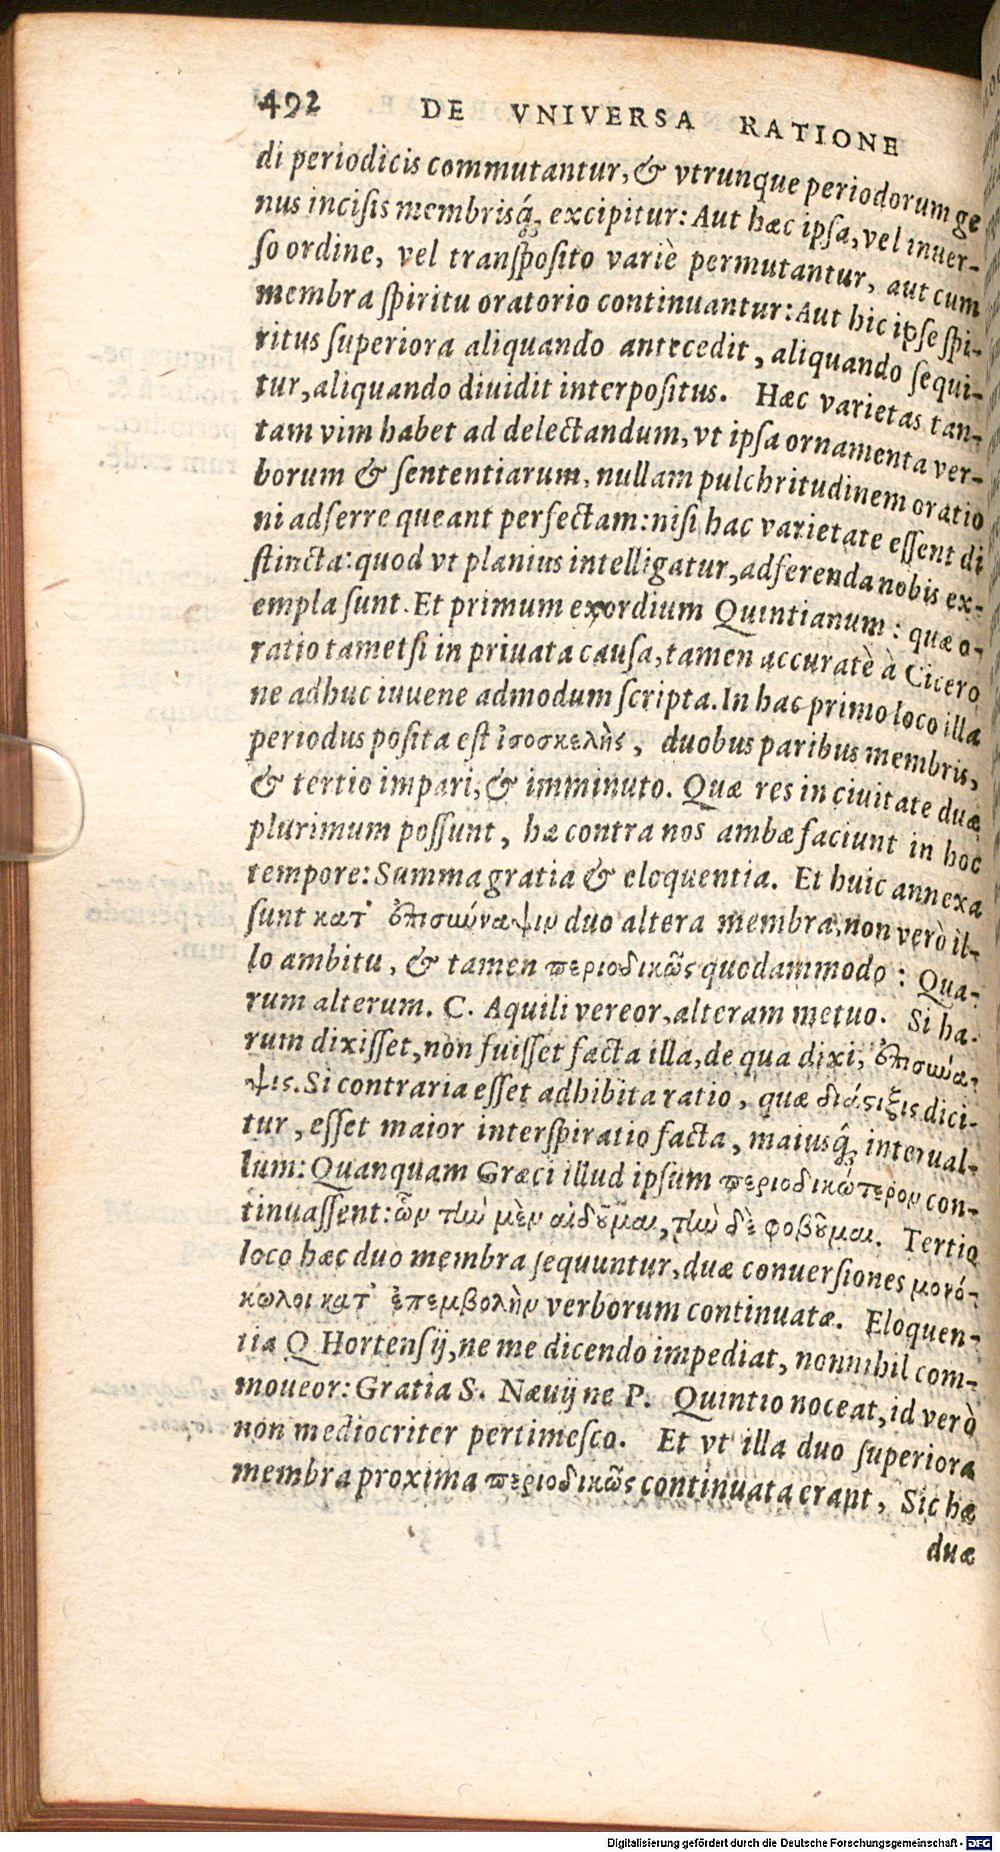 492 DE VNIVERSA RATIONE
di periodicis commutantur, & vtrunque periodorum ge
nus incisis membrisq́; excipitur: Aut hæc ipsa, vel inuer-
so ordine, vel transposito variè permutantur, aut cum
membra spiritu oratorio continuantur: Aut hic ipse spi-
ritus superiora aliquando antecedit, aliquando sequi-
tur, aliquando diuidit interpositus. Hæc varietas tan-
tam vim habet ad delectandum, vt ipsa ornamenta ver-
borum & sententiarum, nullam pulchritudinem oratio
ni adferre queant perfectam: nisi hac varietate essent di
stincta: quod vt planius intelligatur, adferenda nobis ex-
empla sunt. Et primum exordium Quintianum: quæ o-
ratio tametsi in priuata causa, tamen accuratè à Cicero
ne adhuc iuuene admodum scripta. In hac primo loco illa
periodus posita est ἰσοσκελὴς, duobus paribus membris,
& tertio impari, & imminuto. Quæ res in ciuitate duæ
plurimum possunt, hæ contra nos ambæ faciunt in hoc
tempore: Summa gratia & eloquentia. Et huic annexa
sunt κατ' ἐπισωύναψιν duo altera membra, non verò il-
lo ambitu, & tamen περιοδικῶς quodammodo: Qua-
rum alterum. C. Aquili vereor, alteram metuo. Si ha-
rum dixisset, non fuisset facta illa, de qua dixi, ἐπισωύα-
ψις. Si contraria esset adhibita ratio, quæ διάςιξις dici-
tur, esset maior interspiratio facta, maiusq́; interual-
lum: Quanquam Græci illud ipsum περιοδικώτερον con-
tinuassent: ὧν τὴν μὲν αἰδοῦμαι, τὴν δὲ φοβοῦμαι. Tertio
loco hæc duo membra sequuntur, duæ conuersiones μονό-
κωλοι κατ' ἐπεμβολὴν verborum continuatæ. Eloquen-
tia Q Hortensij, ne me dicendo impediat, nonnihil com-
moueor: Gratia S. Næuij ne P. Quintio noceat, id verò
non mediocriter pertimesco. Et vt illa duo superiora
membra proxima περιοδικῶς continuata erant, Sic hæ
duæ
Digitalisierung gefördert durch die Deutsche Forschungsgemeinschaft - DFG